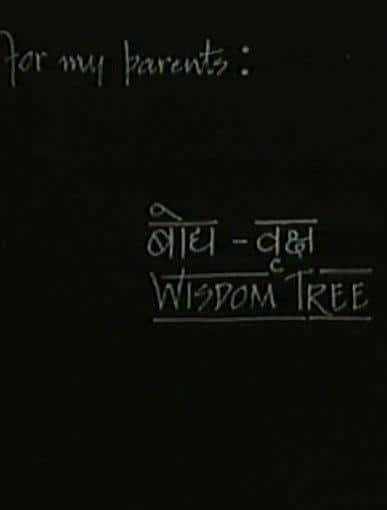 For my parents:
बोध - वृक्ष
WISDOM TREE